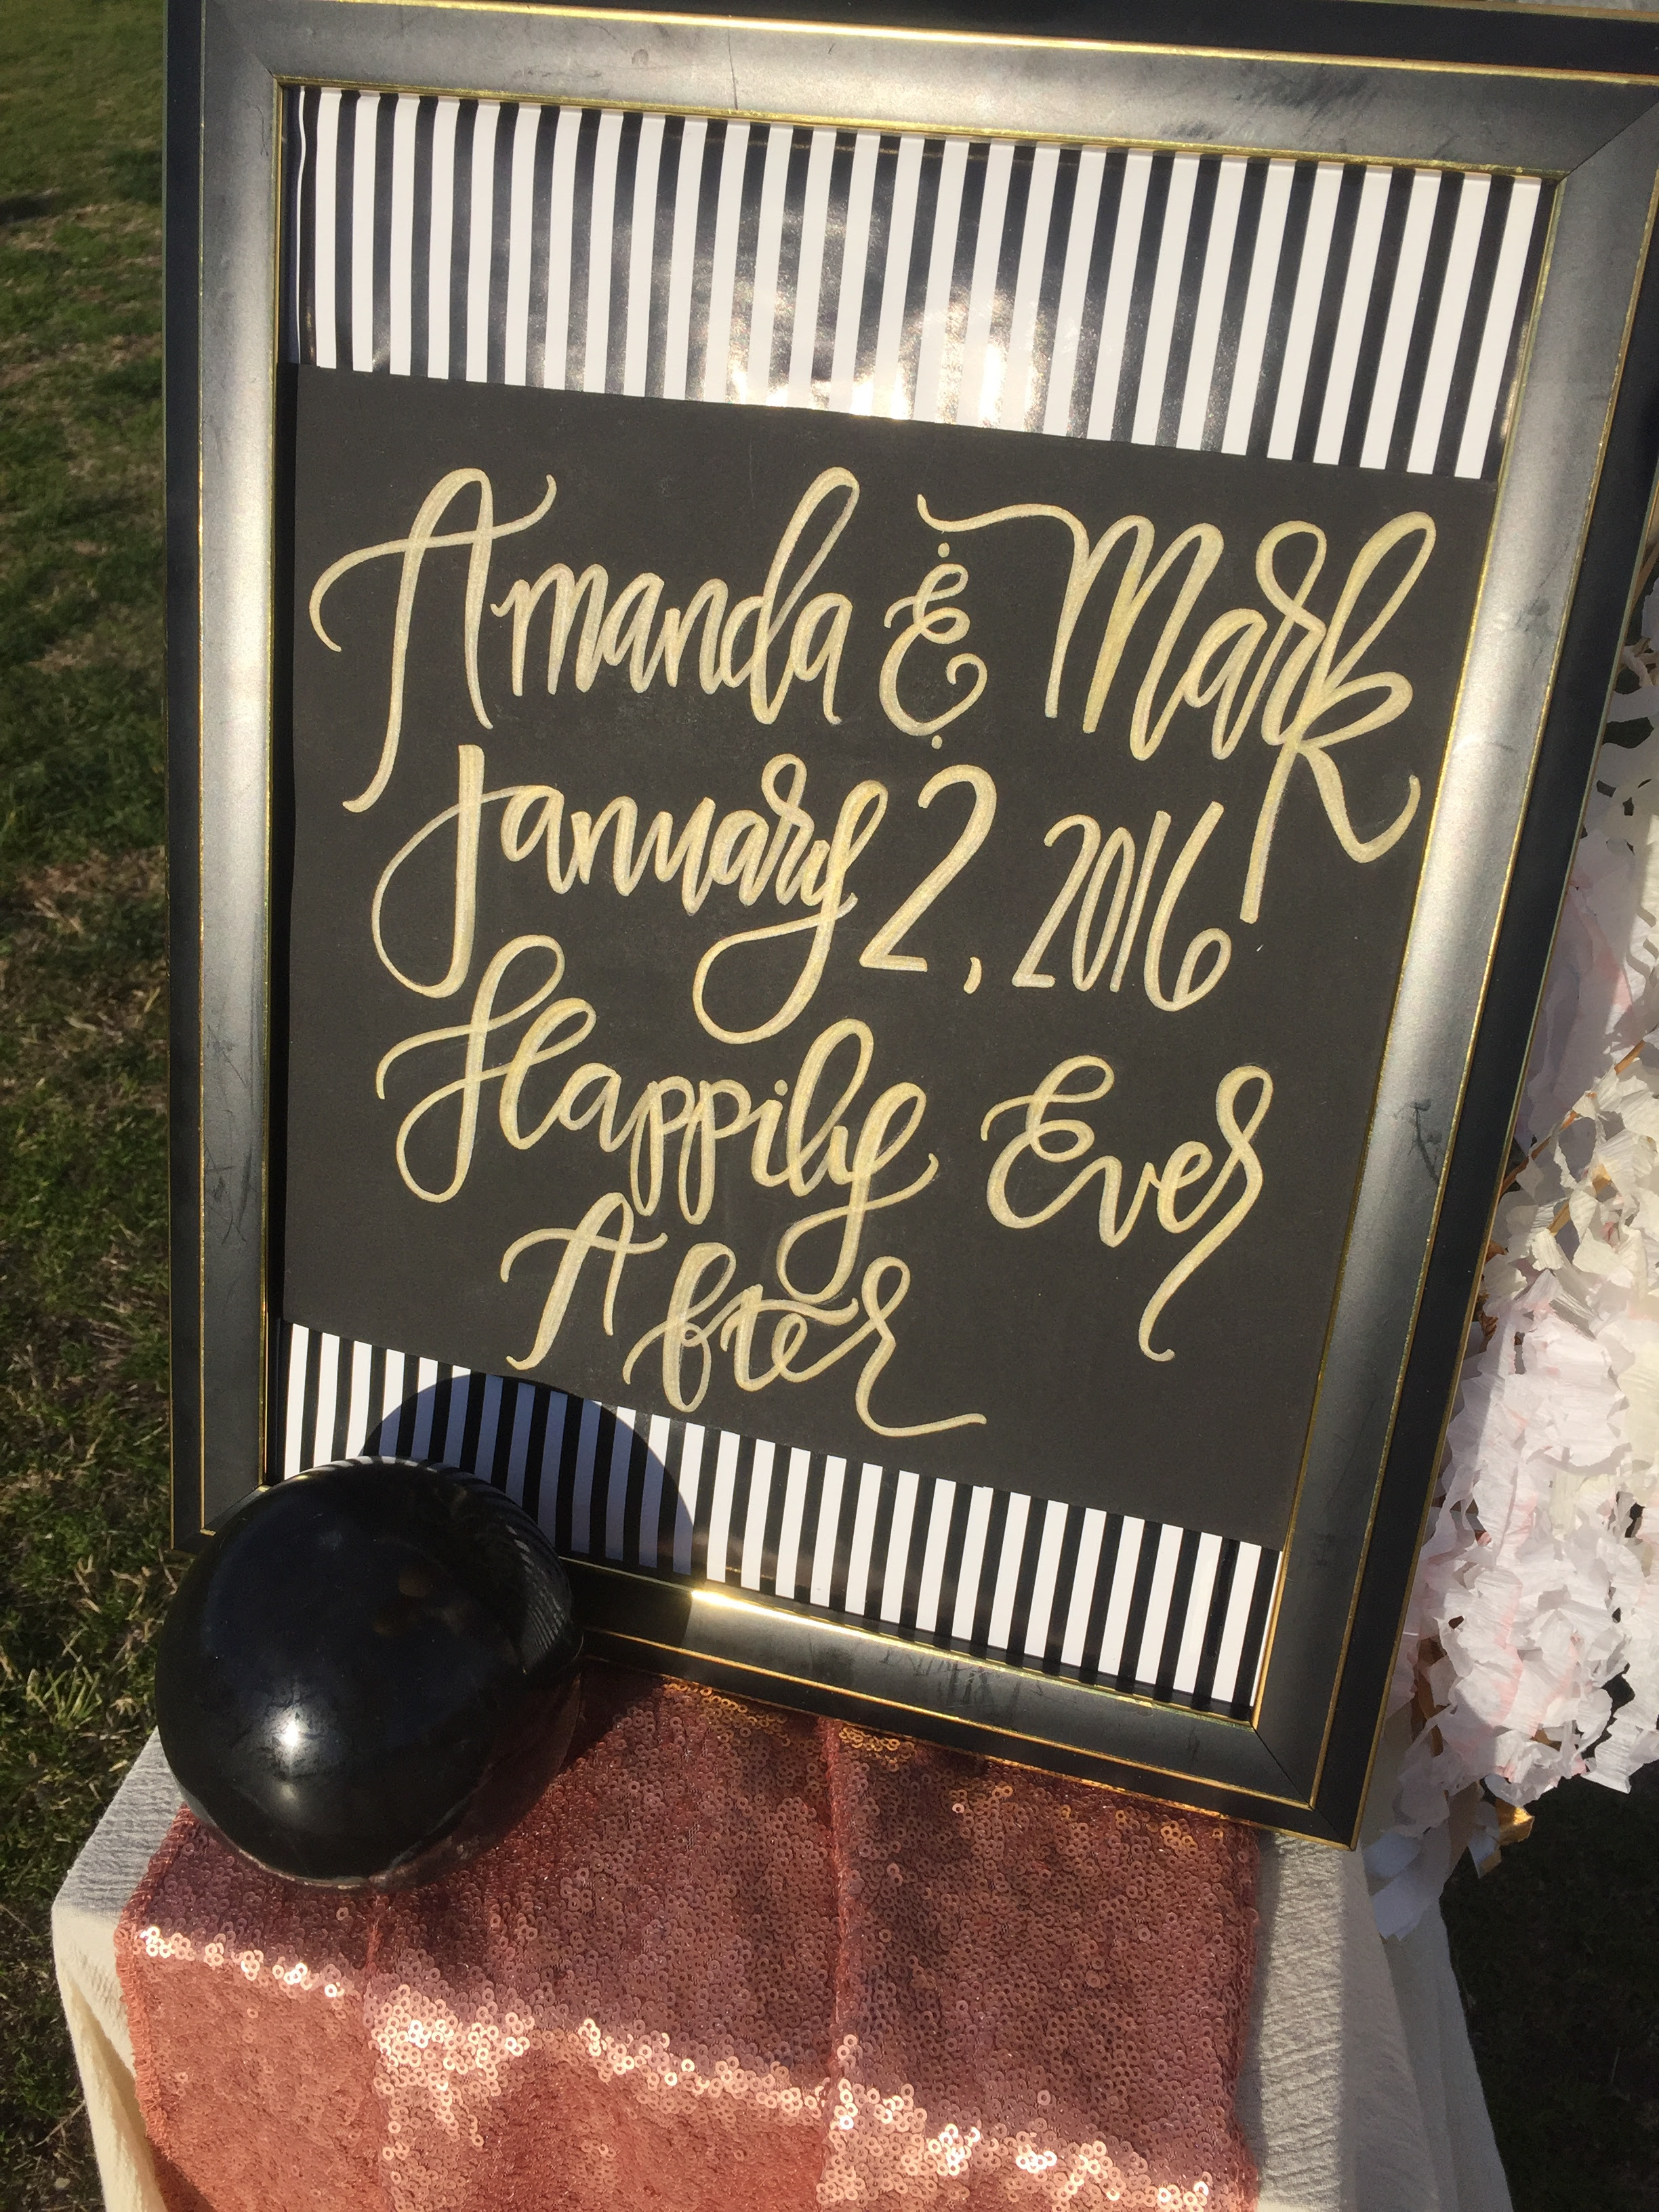 Amanda & Mark
January 2, 2016
Happily Ever
After